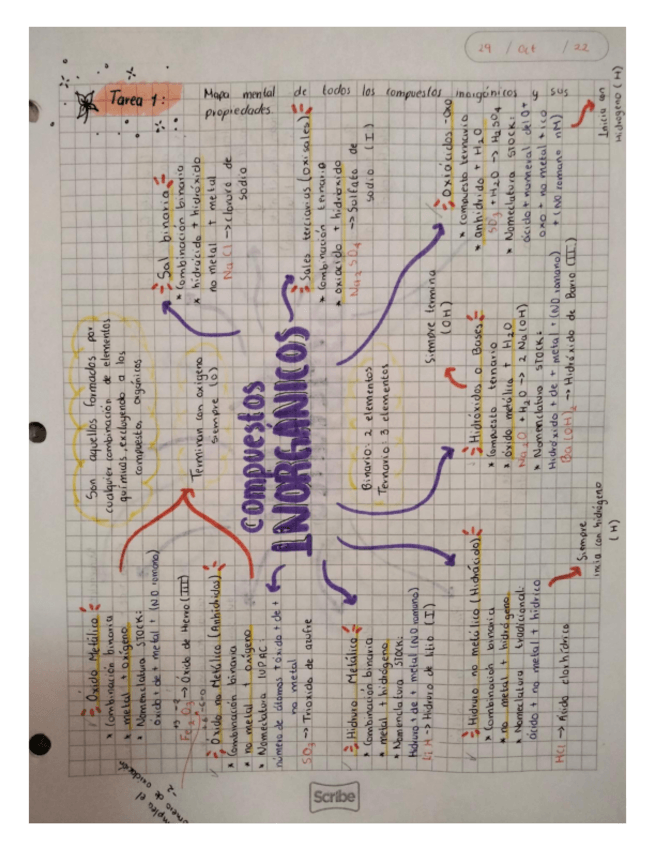 29 / oct / 22
Tarea 1:
Mapa mental de todos los compuestos inorgánicos y sus
propiedades.
Son aquellos formados por
cualquier combinación de elementos
químicos, excluyendo a los
compuestos orgánicos
compuestos
INORGÁNICOS
Terminan con oxígeno
siempre (O)
Binario: 2 elementos
Ternario: 3 elementos
Óxido Metálico
* Combinación binaria
* metal + oxígeno
* Nomenclatura STOCK:
óxido + de + metal + (NO. romano)
+3 -2
Fe2O3 → Óxido de Hierro (III)
Óxido no Metálico (Anhídridos)
* Combinación binaria
* no metal + oxígeno
* Nomenclatura IUPAC
número de átomos + óxido + de +
no metal
SO3 → Trióxido de azufre
Hidruro Metálico
* Combinación binaria
* metal + hidrógeno
* Nomenclatura STOCK:
Hidruro + de + metal (NO. romano)
LiH → Hidruro de litio (I)
Hidruro no metálico (Hidrácido)
* Combinación binaria
* no metal + hidrógeno
* Nomenclatura tradicional:
ácido + no metal + hídrico
HCl → Ácido clorhídrico
Siempre
inicia con hidrógeno
(H)
Hidróxidos o Bases
* Compuesto ternario
* óxido metálico + H2O
Na2O + H2O → 2 Na(OH)
* Nomenclatura STOCK:
Hidróxido + de + metal + (NO. romano)
Ba(OH)2 → Hidróxido de Bario (II)
Siempre termina
(OH)
Sal binaria
* Combinación binaria
* hidrácido + hidróxido
no metal + metal
NaCl → Cloruro de
sodio
Sales terciarias (oxisales)
* Combinación ternaria
* oxiácido + hidróxido
Na2SO4 → Sulfato de
sodio (I)
Oxiácidos -oxo
* Compuesto ternario
* anhídrido + H2O
SO3 + H2O → H2SO4
* Nomenclatura STOCK:
ácido + numeral del O +
oxo + no metal + ico
+ (NO romano nM)
Inicia con
Hidrógeno (H)
número de oxidación
-2
Scribe